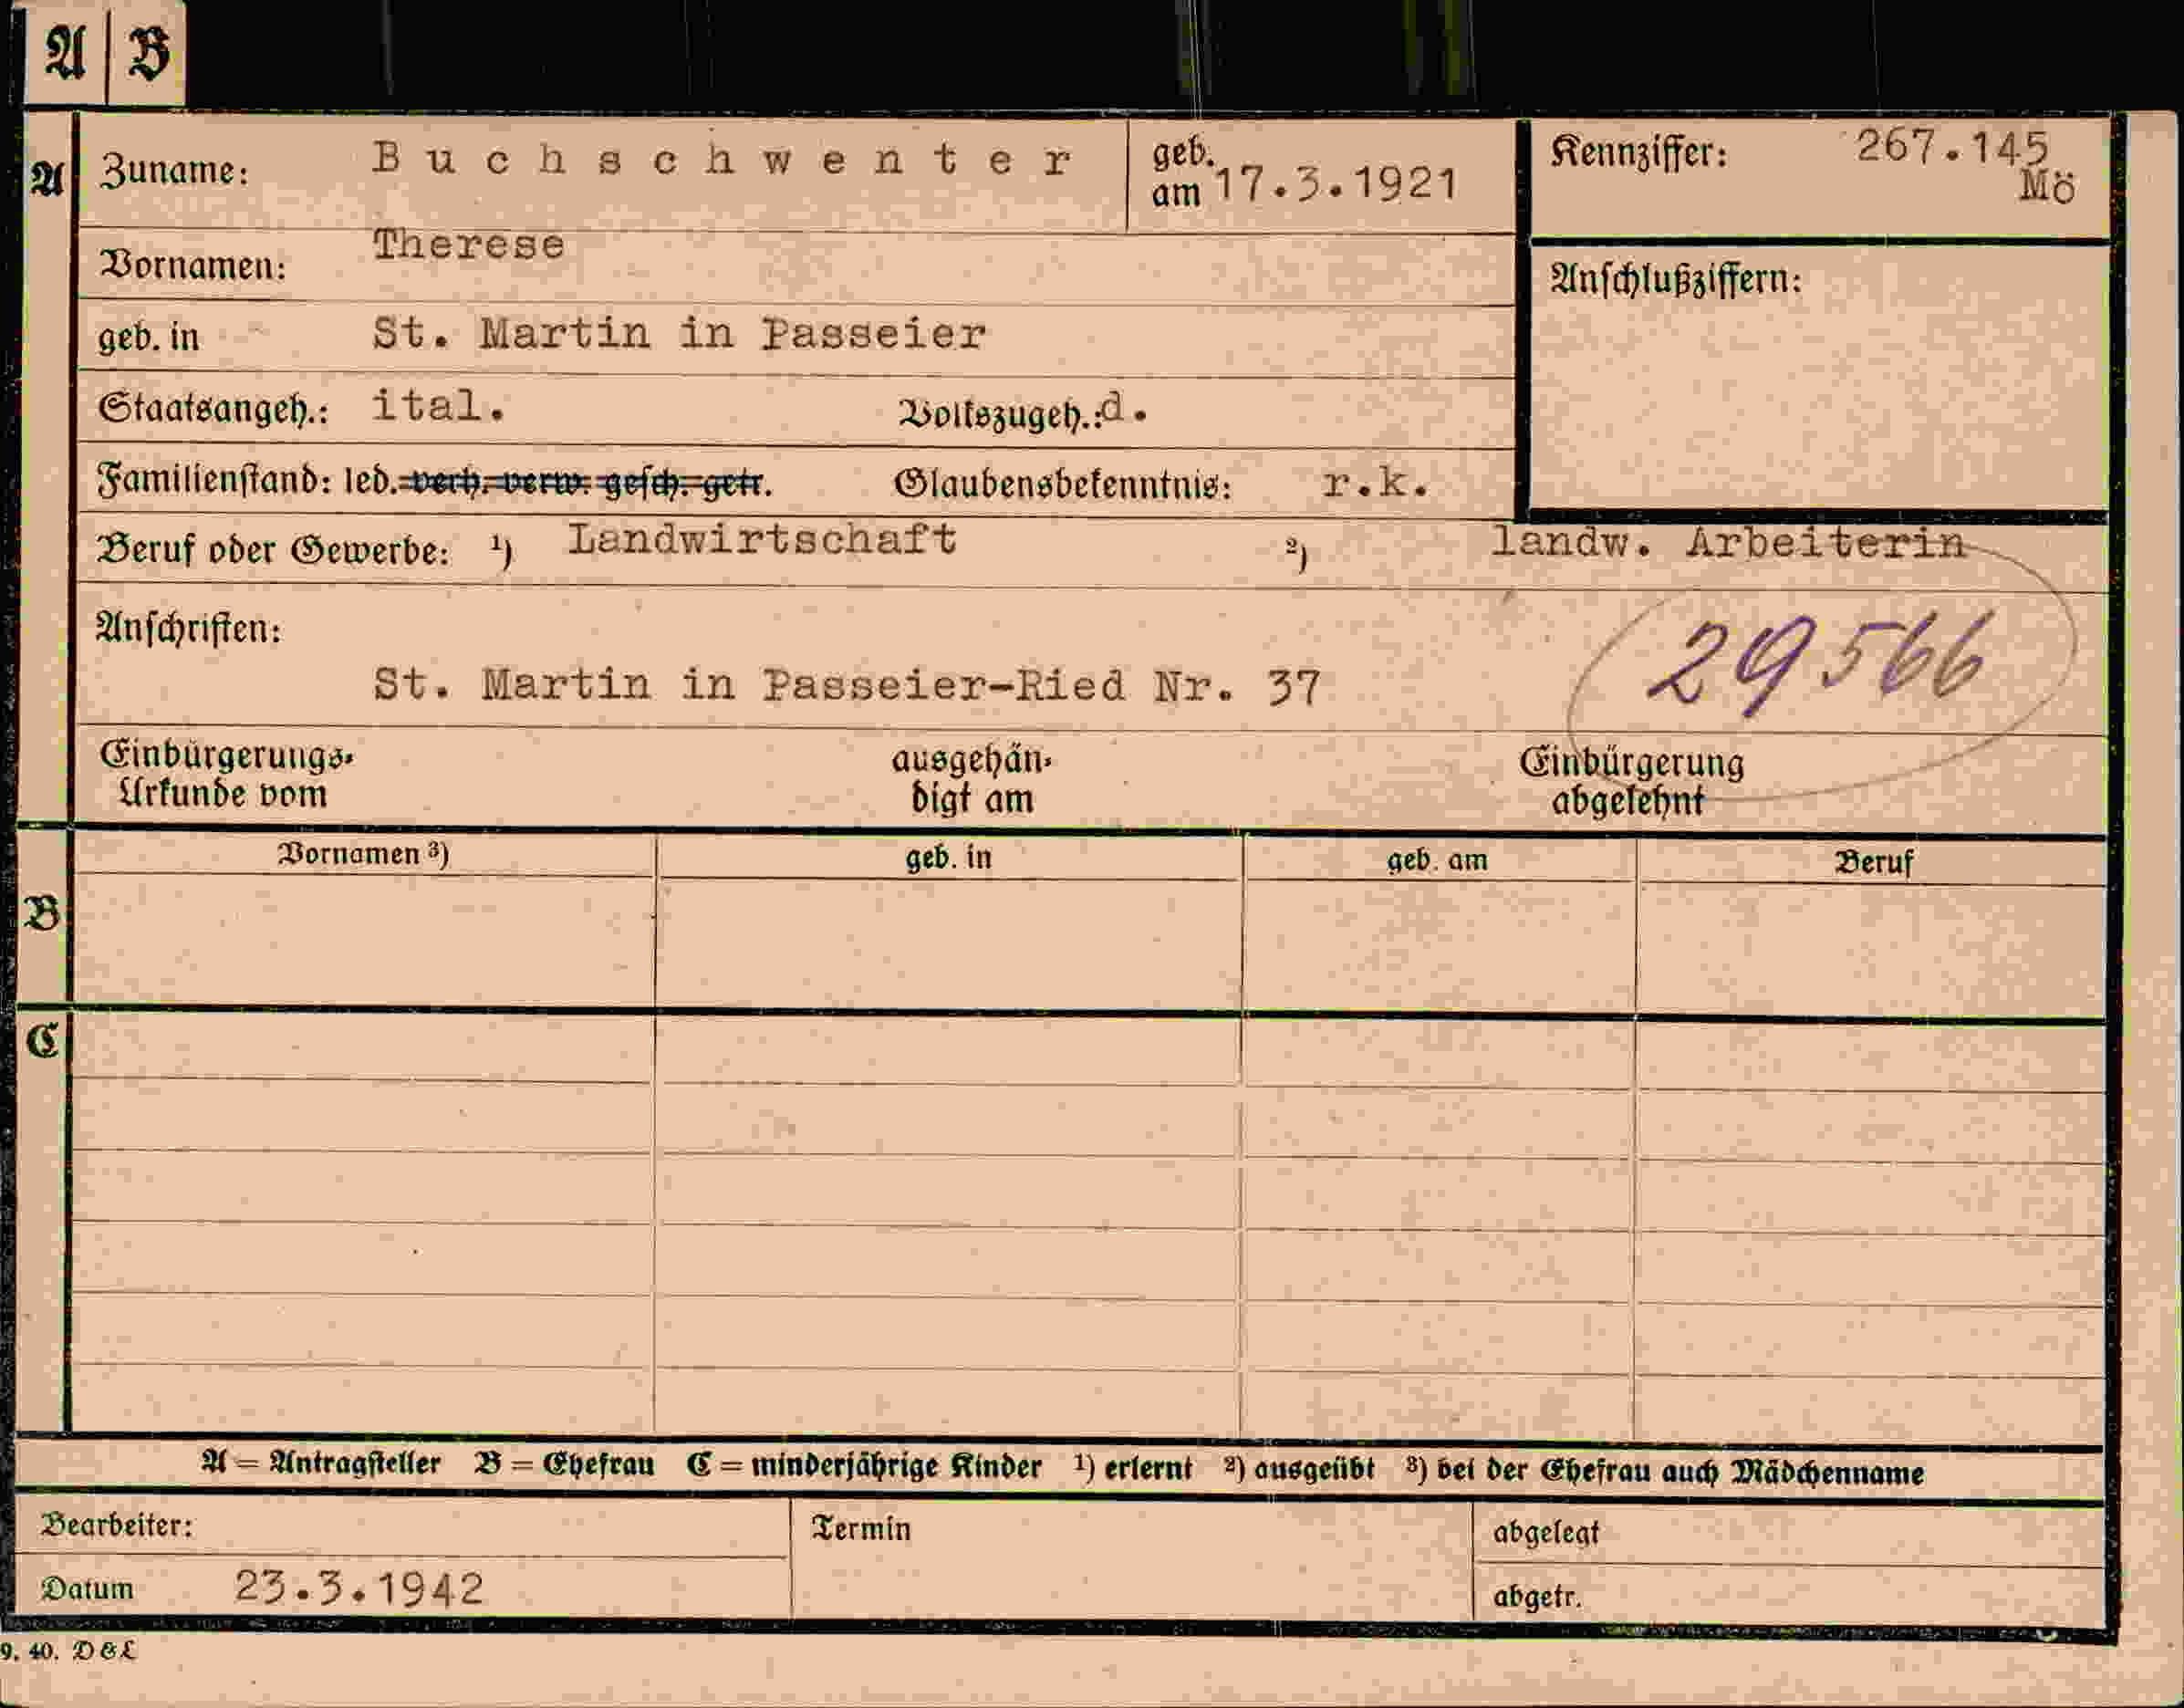 A | B
A Zuname: Buchschwenter geb. am 17.3.1921 Kennziffer: 267.145 Mö
Vornamen: Therese Anschlußziffern:
geb. in St. Martin in Passeier
Staatsangeh.: ital. Volkszugeh.: d.
Familienstand: led. verh. verw. gesch. getr. Glaubensbekenntnis: r.k.
Beruf oder Gewerbe: ¹) Landwirtschaft ²) landw. Arbeiterin
Anschriften:
29566
St. Martin in Passeier-Ried Nr. 37
Einbürgerungs- ausgehän- Einbürgerung
Urkunde vom digt am abgelehnt
Vornamen ³) geb. in geb. am Beruf
B
C
A = Antragsteller B = Ehefrau C = minderjährige Kinder ¹) erlernt ²) ausgeübt ³) bei der Ehefrau auch Mädchenname
Bearbeiter: Termin abgelegt
Datum 23.3.1942 abgetr.
9. 40. D & L